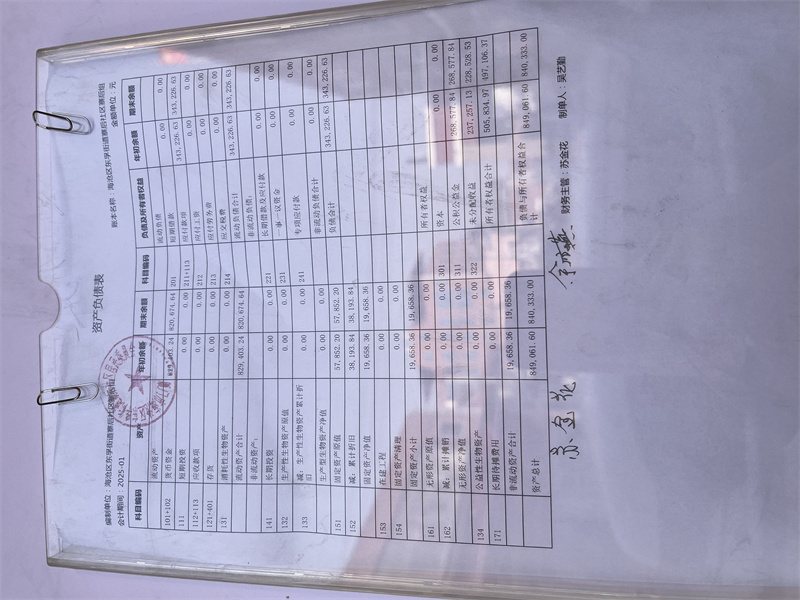 资产负债表
编制单位：海沧区东孚街道寨后社区寨后组 账本名称：海沧区东孚街道寨后社区寨后组
会计期间：2025-01 金额单位：元
科目编码 资产 年初余额 期末余额 科目编码 负债及所有者权益 年初余额 期末余额
流动资产 流动负债
101+102 货币资金 829,403.24 820,674.64 201 短期借款 0.00 0.00
111 短期投资 0.00 0.00 211+113 应付款项 343,226.63 343,226.63
112+113 应收款项 0.00 0.00 212 应付工资 0.00 0.00
121+401 存货 0.00 0.00 213 应付劳务费 0.00 0.00
131 消耗性生物资产 0.00 0.00 214 应交税费 0.00 0.00
流动资产合计 829,403.24 820,674.64 流动负债合计 343,226.63 343,226.63
非流动资产： 非流动负债：
141 长期投资 0.00 0.00 221 长期借款及应付款 0.00 0.00
132 生产性生物资产原值 0.00 0.00 231 一事一议资金 0.00 0.00
133 减：生产性生物资产累计折旧 0.00 0.00 241 专项应付款 0.00 0.00
生产型生物资产净值 0.00 0.00 非流动负债合计 0.00 0.00
151 固定资产原值 57,852.20 57,852.20 负债合计 343,226.63 343,226.63
152 减：累计折旧 38,193.84 38,193.84
固定资产净值 19,658.36 19,658.36
153 在建工程 0.00 0.00
154 固定资产清理 0.00 0.00
固定资产小计 19,658.36 19,658.36
161 无形资产原值 0.00 0.00 所有者权益
162 减：累计摊销 0.00 0.00 301 资本 0.00 0.00
无形资产净值 0.00 0.00 311 公积公益金 268,577.84 268,577.84
134 公益性生物资产 0.00 0.00 322 未分配收益 237,257.13 228,528.53
171 长期待摊费用 0.00 0.00 所有者权益合计 505,834.97 497,106.37
非流动资产合计 19,658.36 19,658.36
资产总计 849,061.60 840,333.00 负债与所有者权益合计 849,061.60 840,333.00
财务主管：苏金花 制单人：吴艺勤
苏金花